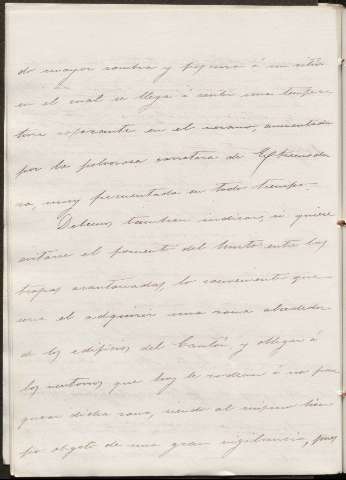 do mayor sombra y frescura á un sitio
en el cual se llega á sentir una tempera
tura sofocante en el verano, aumentada
por la polvorosa carretera de Extremadu
ra, muy frecuentada en todo tiempo.—
Debemos tambien indicar, si quiere
evitarse el fomento del hurto entre las
tropas acantonadas, lo conveniente que
sería el adquirir una zona alrededor
de los edificios del Cantón y obligar á
los ventorros que hoy le rodean á no fran
quear dicha zona, siendo al mismo tiem
po objeto de una gran vigilancia, pues